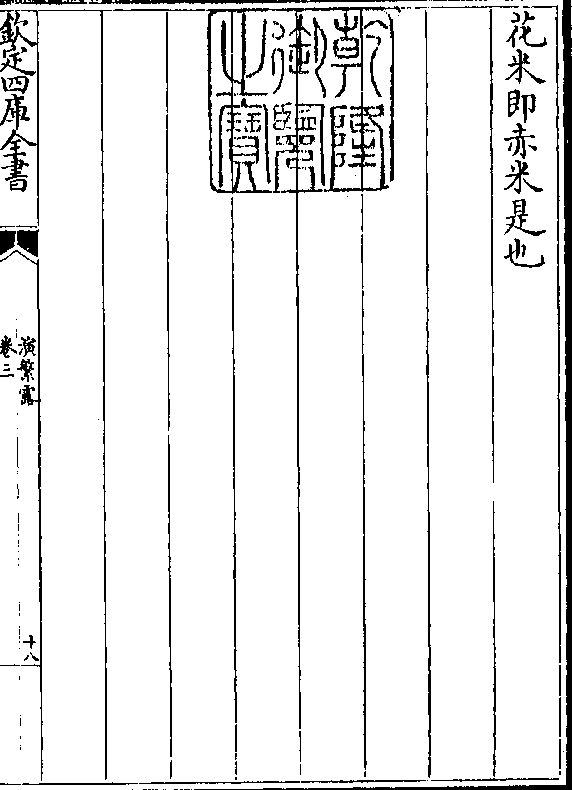 花米即赤米是也
乾隆
御覽
之寶
欽定四庫全書
演繁露
卷三
十八